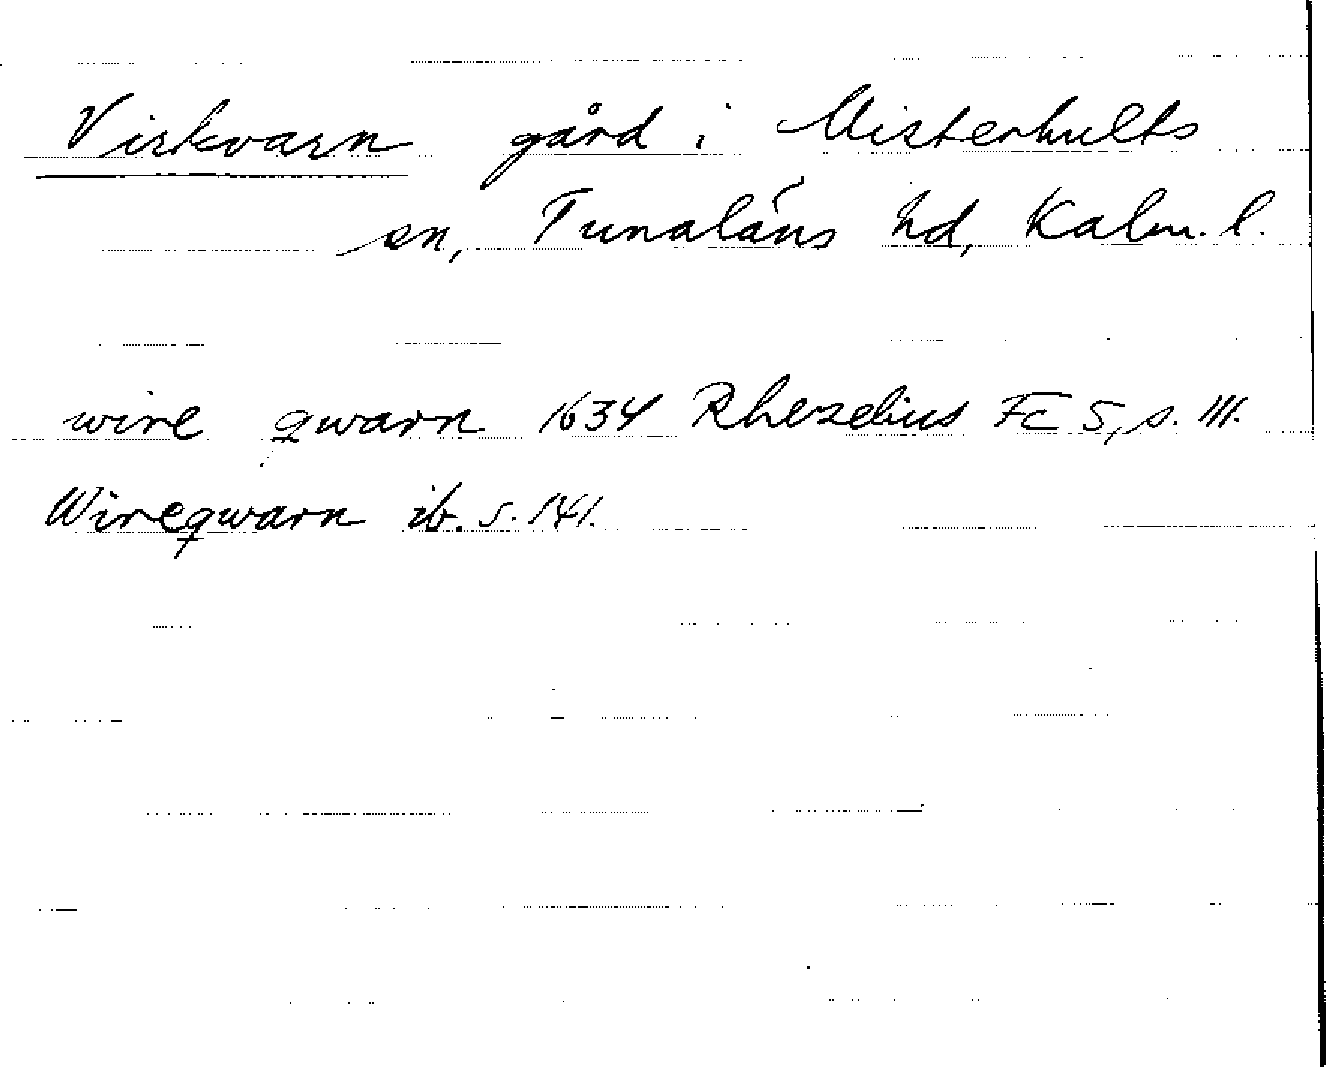 Virkvarn gård i Misterhults
sn, Tunaläns hd, Kalm. l.
wire qwarn 1634 Rhezelius Fc 5, s. 111.
Wireqwarn ib. s. 141.